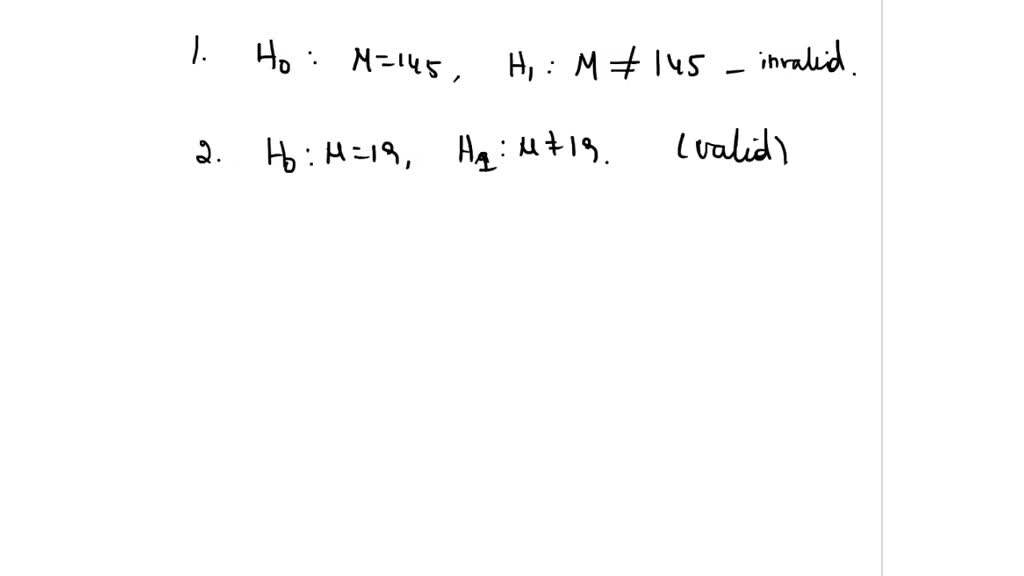 1. H₀ : μ=145, H₁ : μ ≠ 145 – invalid.
2. H₀ : μ=19, H₁ : μ ≠ 19. (valid)